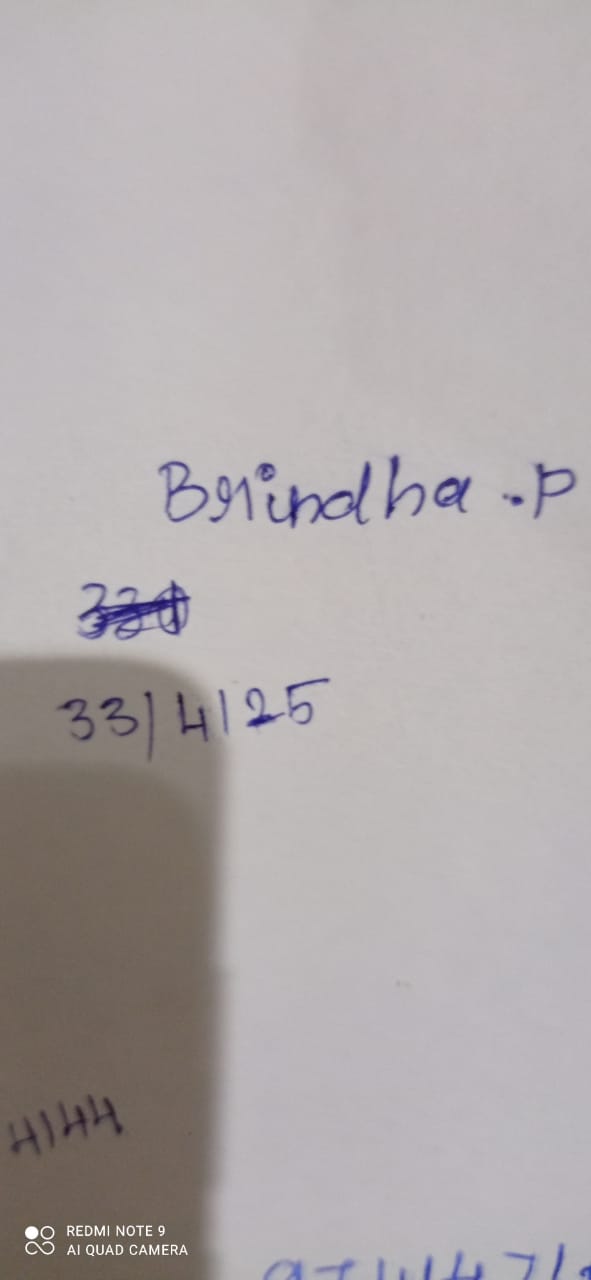 Brindha .P
33/4/25
4144
REDMI NOTE 9
AI QUAD CAMERA